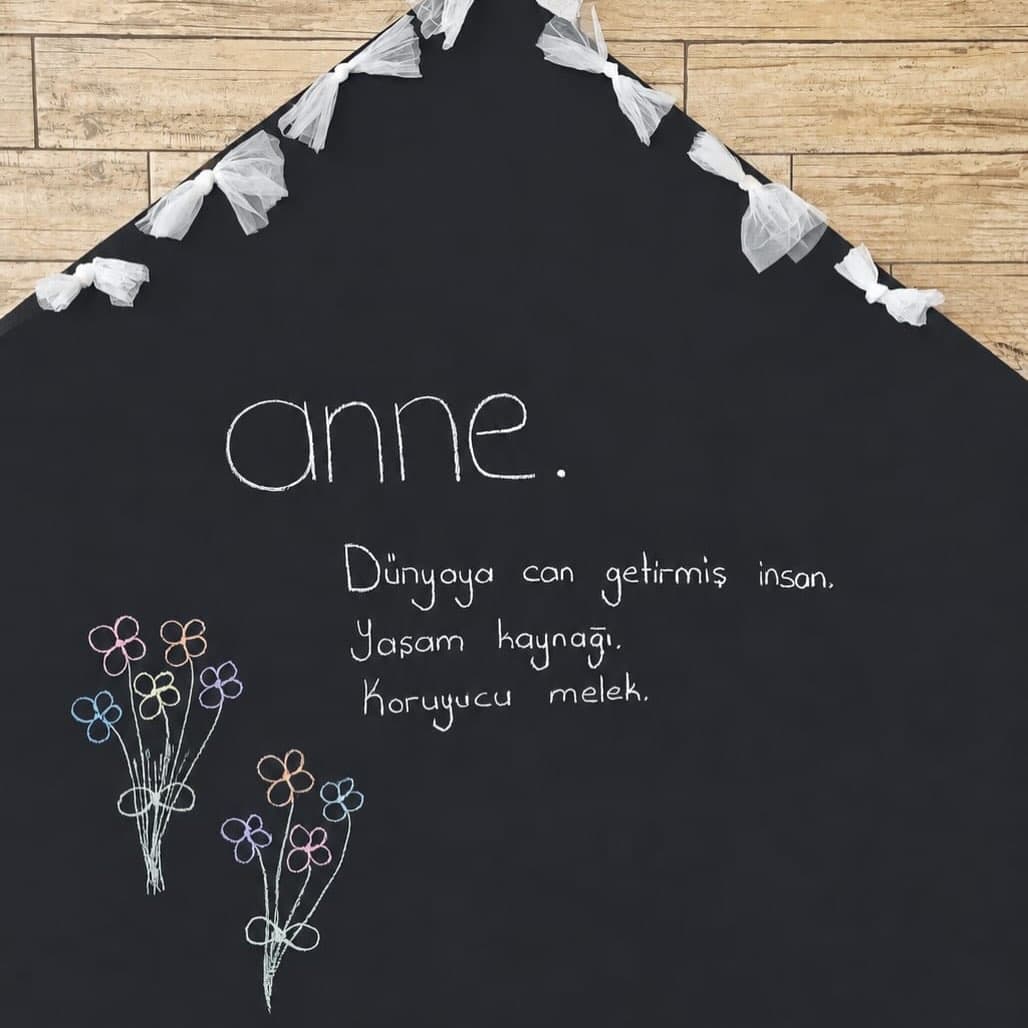 anne.
Dünyaya can getirmiş insan.
Yaşam kaynağı.
Koruyucu melek.